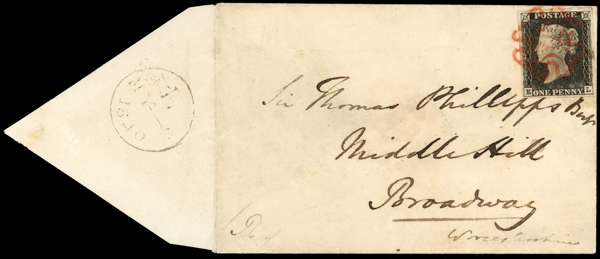 POSTAGE
ONE PENNY
Sir Thomas Phillipps Bart
Middle Hill
Broadway
Worcestershire